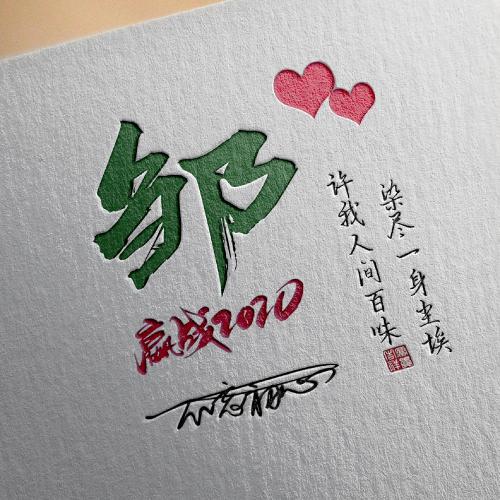 邹
赢战2020
许我人间百味
染尽一身尘埃